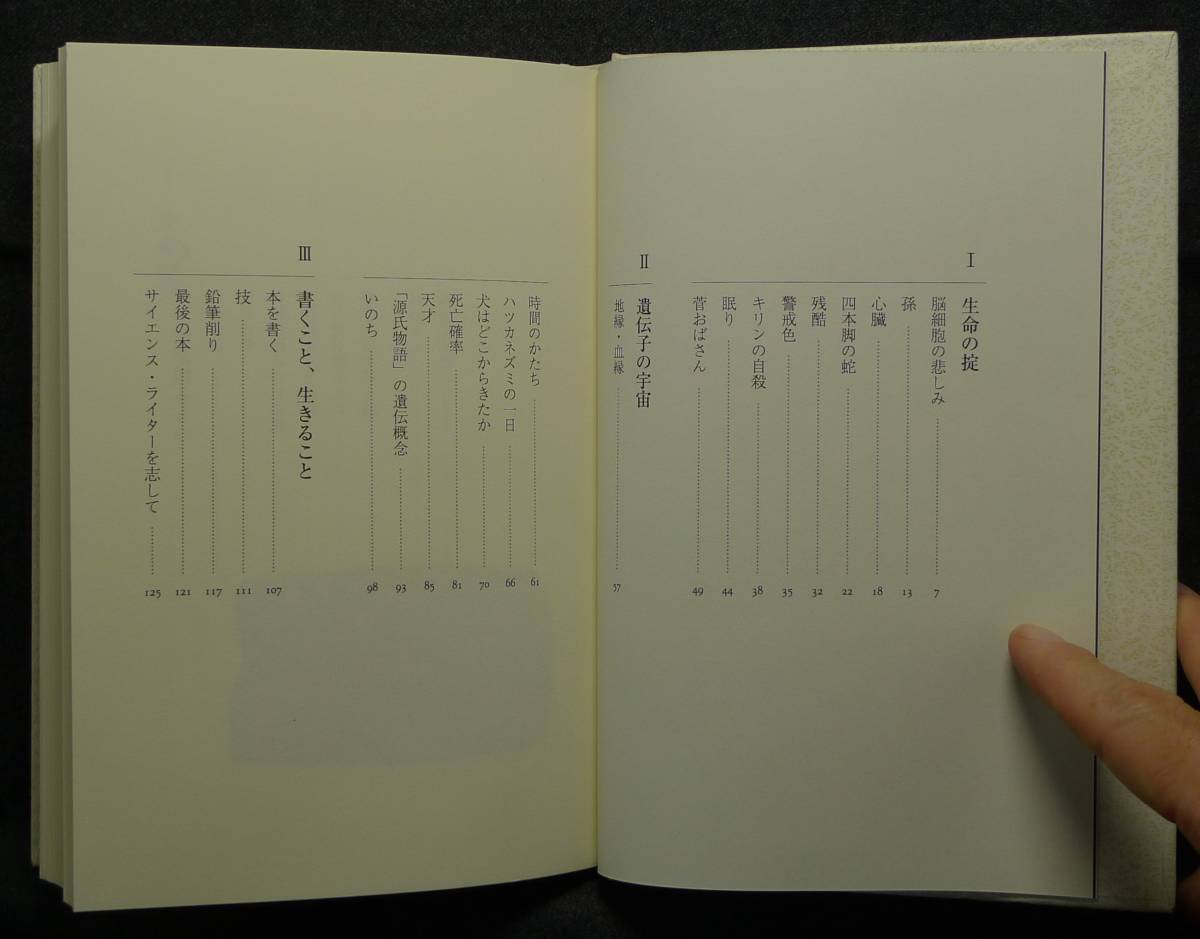 Ⅰ 生命の掟
脳細胞の悲しみ 7
孫 13
心臓 18
四本脚の蛇 22
残酷 32
警戒色 35
キリンの自殺 38
眠り 44
菅おばさん 49
Ⅱ 遺伝子の宇宙
地縁・血縁 57
時間のかたち 61
ハツカネズミの一日 66
犬はどこからきたか 70
死亡確率 81
天才 85
「源氏物語」の遺伝概念 93
いのち 98
Ⅲ 書くこと、生きること
本を書く 107
技 111
鉛筆削り 117
最後の本 121
サイエンス・ライターを志して 125